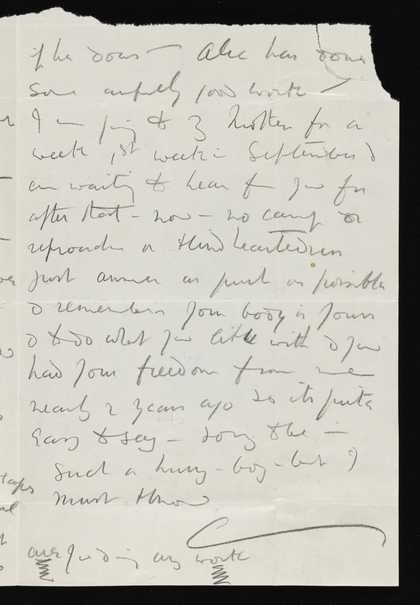 if he does — Alec has done
some awfully good work
I am going to my Mother for a
week, 1st week in September &
am waiting to hear from you for
after that — now — no camp or
reproaches or thin heartedness
just answer as quick as possible
& remember your body is yours
& to do what you like with & you
had your freedom from me
nearly 2 years ago so its quite
easy to say — sorry to be in
such a hurry — boy — but I
must know
are you doing any work